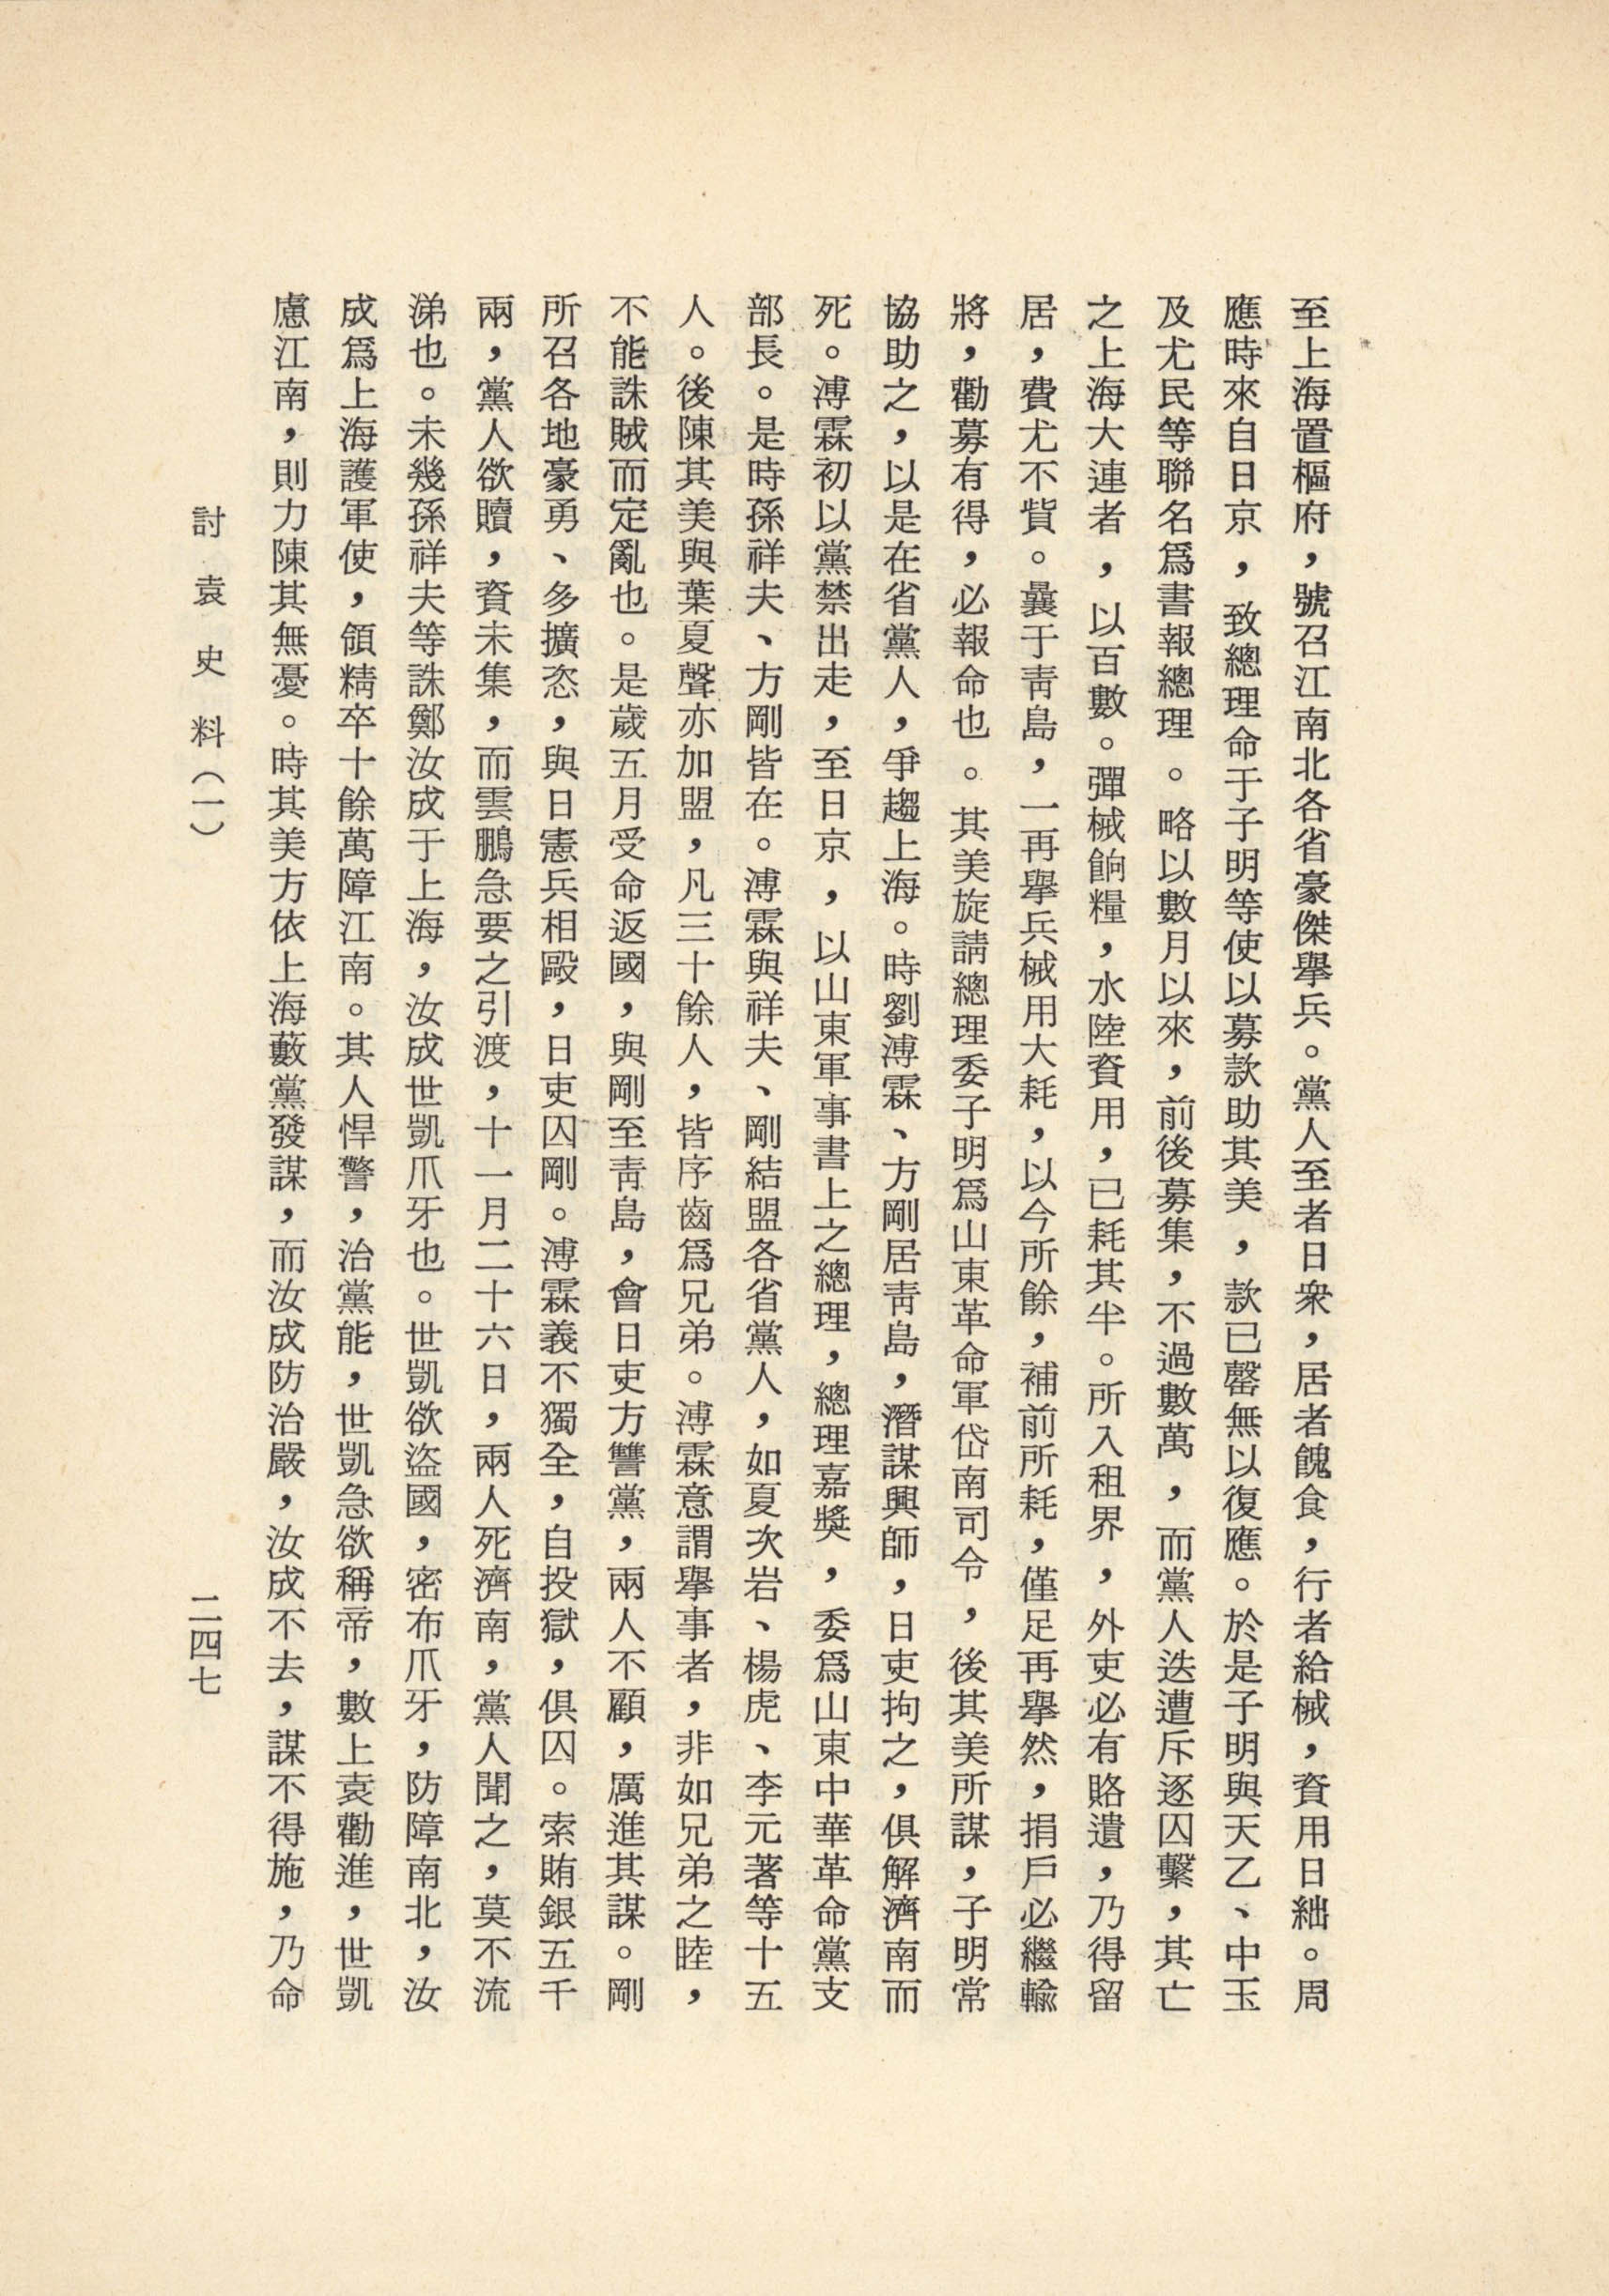 至上海置樞府，號召江南北各省豪傑舉兵。黨人至者日衆，居者餽食，行者給械，資用日絀。周
應時來自日京，致總理命于子明等使以募款助其美，款已罄無以復應。於是子明與天乙、中玉
及尤民等聯名爲書報總理。略以數月以來，前後募集，不過數萬，而黨人迭遭斥逐囚繫，其亡
之上海大連者，以百數。彈械餉糧，水陸資用，已耗其半。所入租界，外吏必有賂遺，乃得留
居，費尤不貲。曩于靑島，一再舉兵械用大耗，以今所餘，補前所耗，僅足再舉然，捐戶必繼輸
將，勸募有得，必報命也。其美旋請總理委子明爲山東革命軍岱南司令，後其美所謀，子明常
協助之，以是在省黨人，爭趨上海。時劉溥霖、方剛居靑島，潛謀興師，日吏拘之，俱解濟南而
死。溥霖初以黨禁出走，至日京，以山東軍事書上之總理，總理嘉獎，委爲山東中華革命黨支
部長。是時孫祥夫、方剛皆在。溥霖與祥夫、剛結盟各省黨人，如夏次岩、楊虎、李元著等十五
人。後陳其美與葉夏聲亦加盟，凡三十餘人，皆序齒爲兄弟。溥霖意謂舉事者，非如兄弟之睦，
不能誅賊而定亂也。是歲五月受命返國，與剛至靑島，會日吏方讐黨，兩人不顧，厲進其謀。剛
所召各地豪勇、多擴恣，與日憲兵相毆，日吏囚剛。溥霖義不獨全，自投獄，俱囚。索賄銀五千
兩，黨人欲贖，資未集，而雲鵬急要之引渡，十一月二十六日，兩人死濟南，黨人聞之，莫不流
涕也。未幾孫祥夫等誅鄭汝成于上海，汝成世凱爪牙也。世凱欲盜國，密布爪牙，防障南北，汝
成爲上海護軍使，領精卒十餘萬障江南。其人悍警，治黨能，世凱急欲稱帝，數上袁勸進，世凱
慮江南，則力陳其無憂。時其美方依上海藪黨發謀，而汝成防治嚴，汝成不去，謀不得施，乃命
討袁史料（一）
二四七